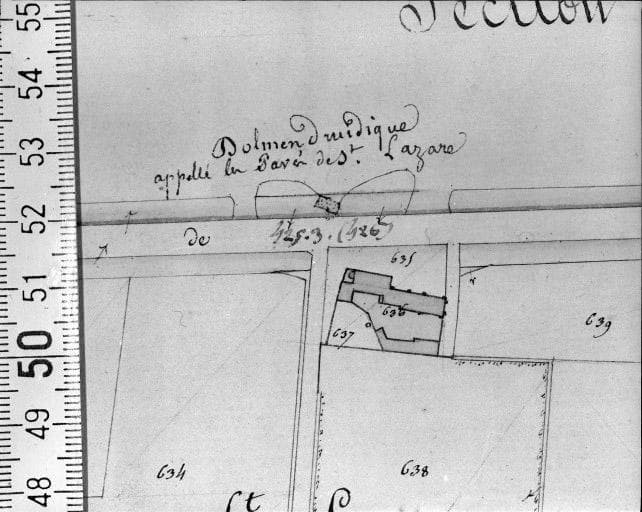 Section
55
54
53
52
51
50
49
48
Dolmen druidique
appellé les Pavés de St. Lazare
de
425.3. (426)
635
636
637
639
634
638
St P